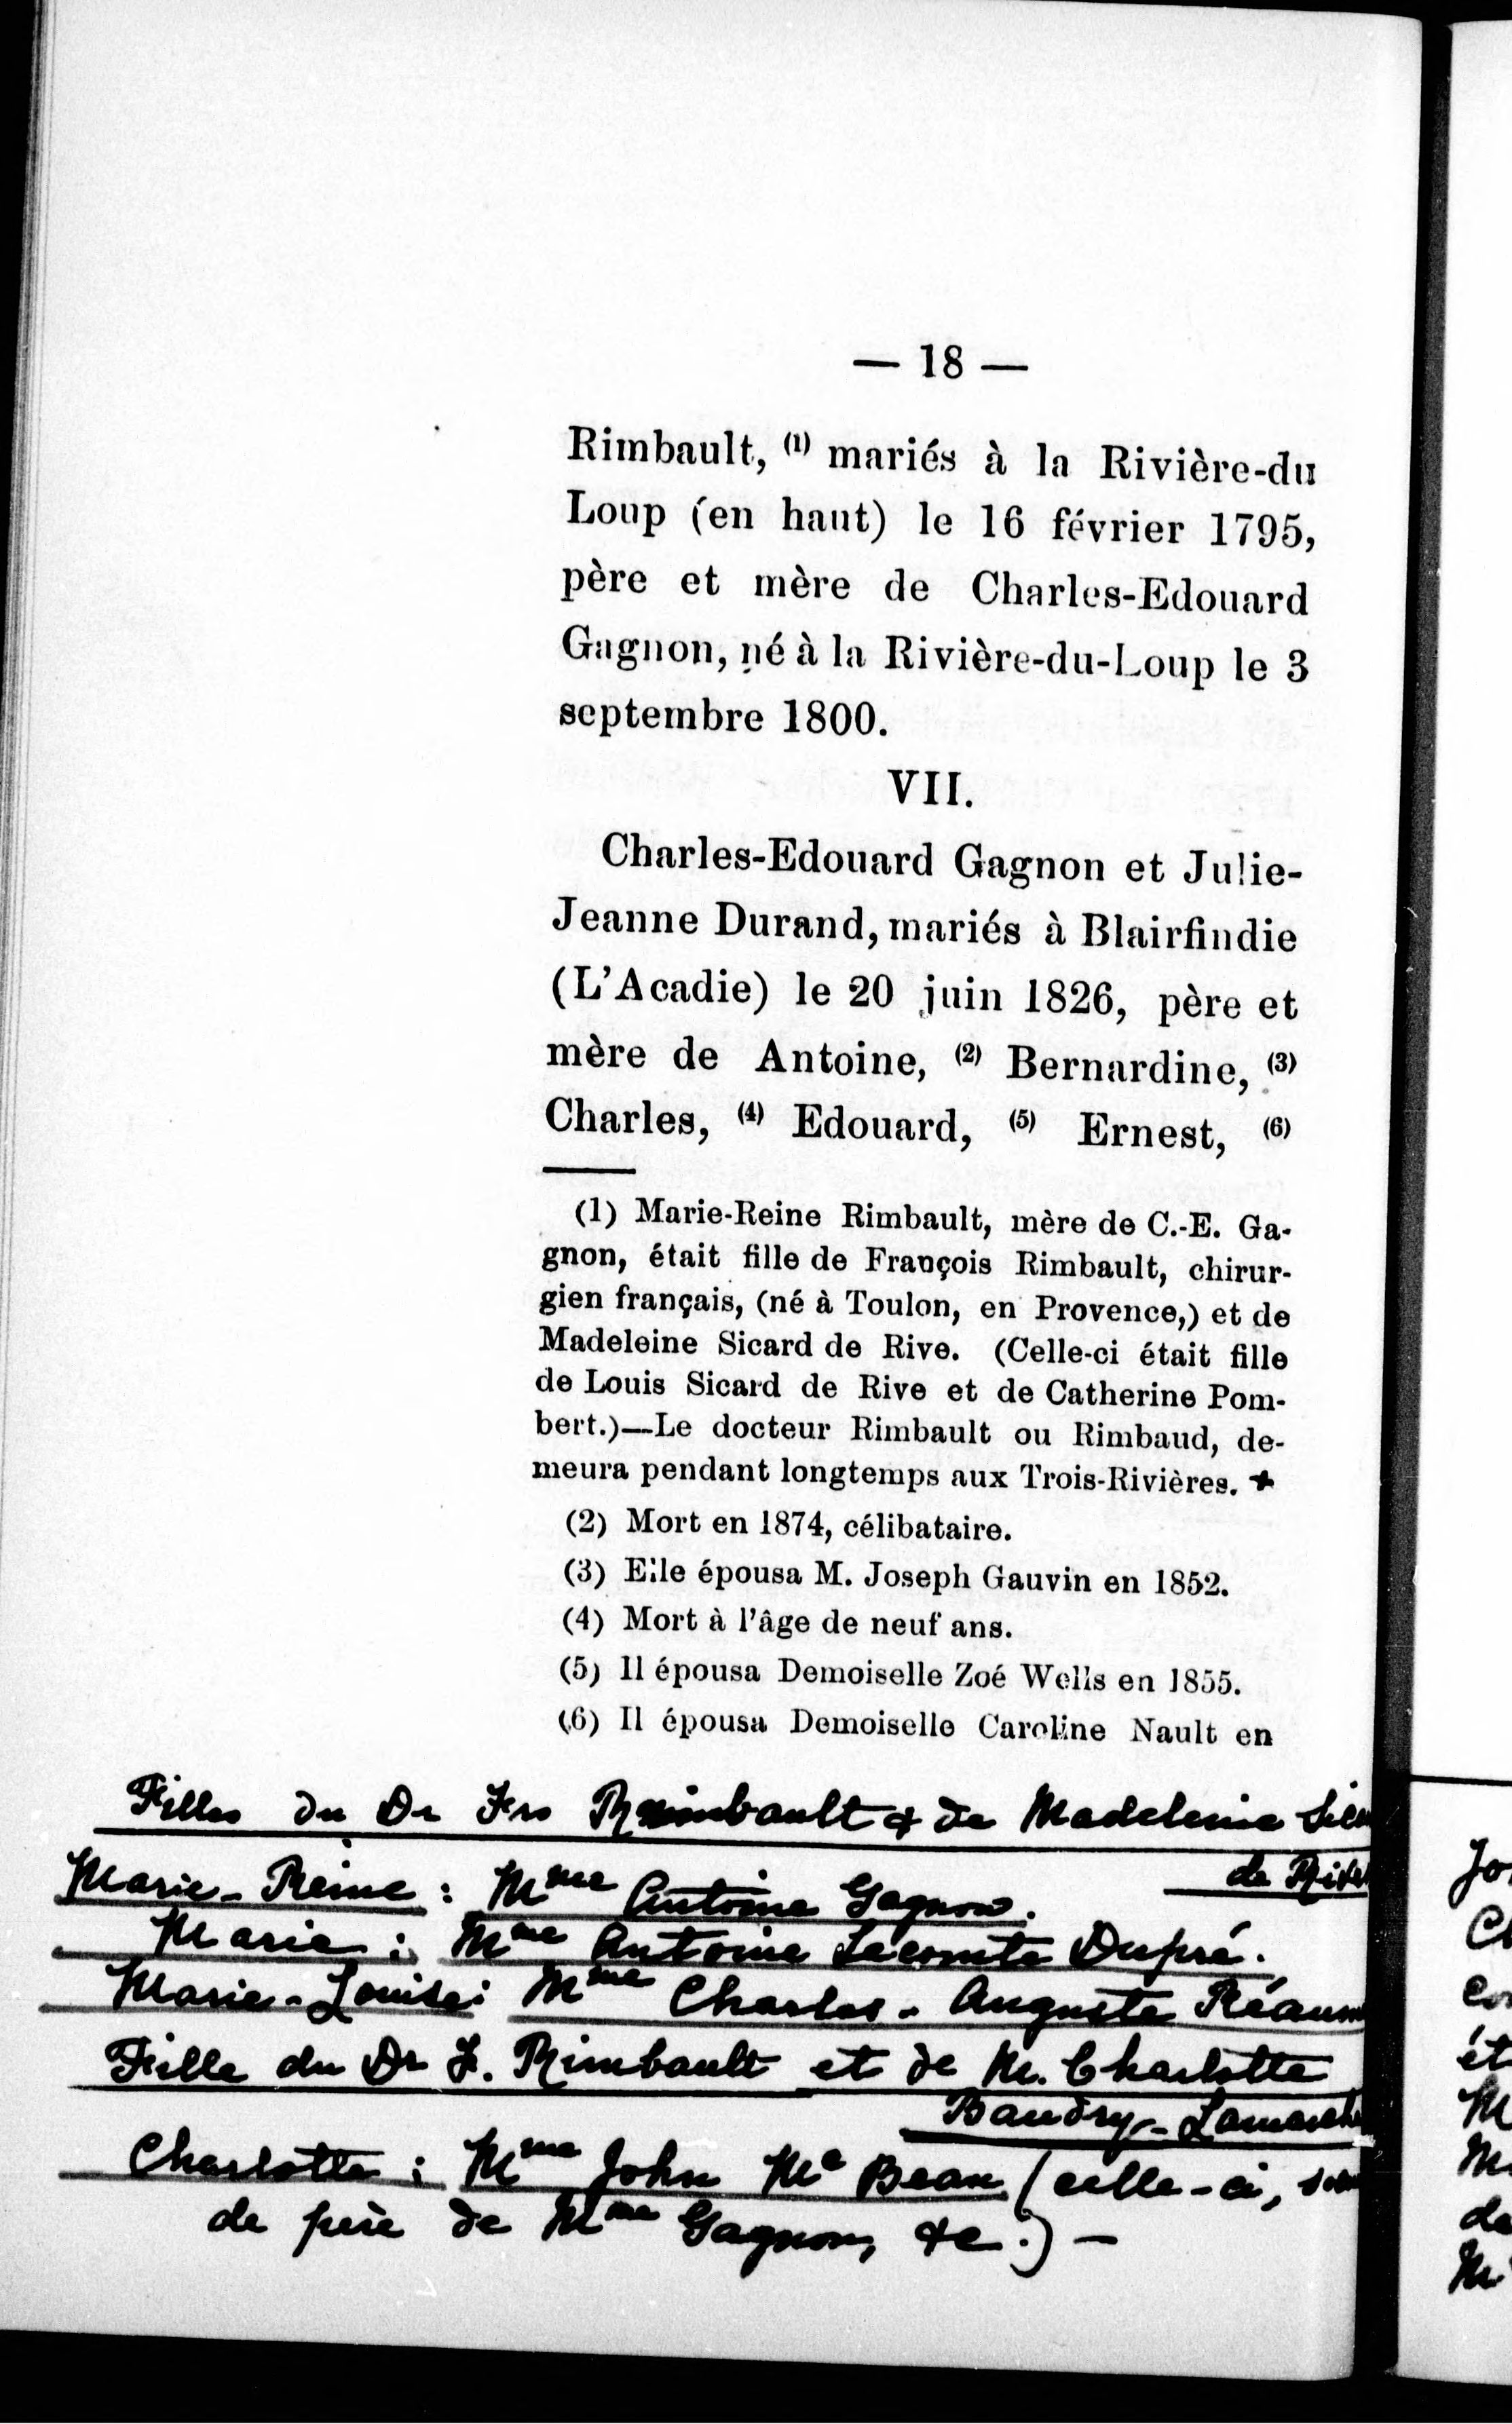 — 18 —
Rimbault, (1) mariés à la Rivière-du
Loup (en haut) le 16 février 1795,
père et mère de Charles-Edouard
Gagnon, né à la Rivière-du-Loup le 3
septembre 1800.
VII.
Charles-Edouard Gagnon et Julie-
Jeanne Durand, mariés à Blairfindie
(L'Acadie) le 20 juin 1826, père et
mère de Antoine, (2) Bernardine, (3)
Charles, (4) Edouard, (5) Ernest, (6)
(1) Marie-Reine Rimbault, mère de C.-E. Ga-
gnon, était fille de François Rimbault, chirur-
gien français, (né à Toulon, en Provence,) et de
Madeleine Sicard de Rive. (Celle-ci était fille
de Louis Sicard de Rive et de Catherine Pom-
bert.)—Le docteur Rimbault ou Rimbaud, de-
meura pendant longtemps aux Trois-Rivières. +
(2) Mort en 1874, célibataire.
(3) Elle épousa M. Joseph Gauvin en 1852.
(4) Mort à l'âge de neuf ans.
(5) Il épousa Demoiselle Zoé Wells en 1855.
(6) Il épousa Demoiselle Caroline Nault en
Filles du Dr Frs Rimbault & de Madeleine
de
Marie-Reine : Mme Antoine Gagnon.
Marie : Mme Antoine Lecomte Dupré.
Marie-Louise : Mme Charles-Auguste Réaum
Fille du Dr F. Rimbault et de M. Charlotte
Baudry-Lamarche
Charlotte : Mme John Mc Bean (celle-ci,
de père de Mme Gagnon, &c.) —
Jo
C
ét
M
M
de
M